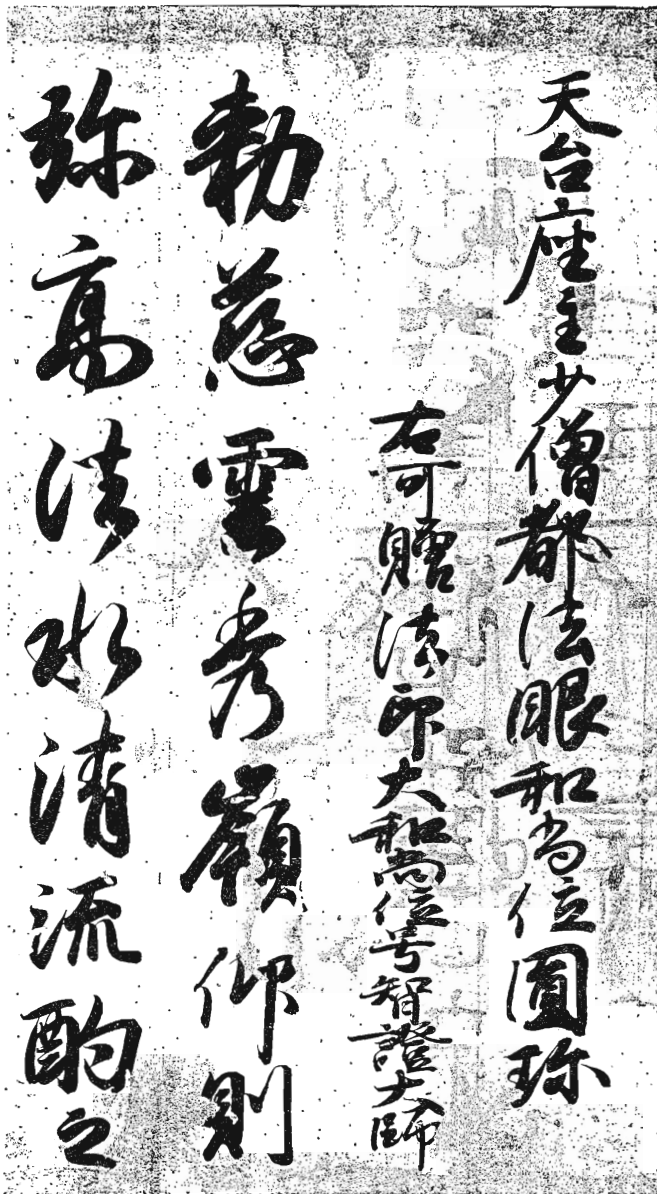 天台座主少僧都法眼和尚位圓珎
右可贈法印大和尚位号智證大師
勅慈雲秀嶺仰則
弥高法水清流酌之